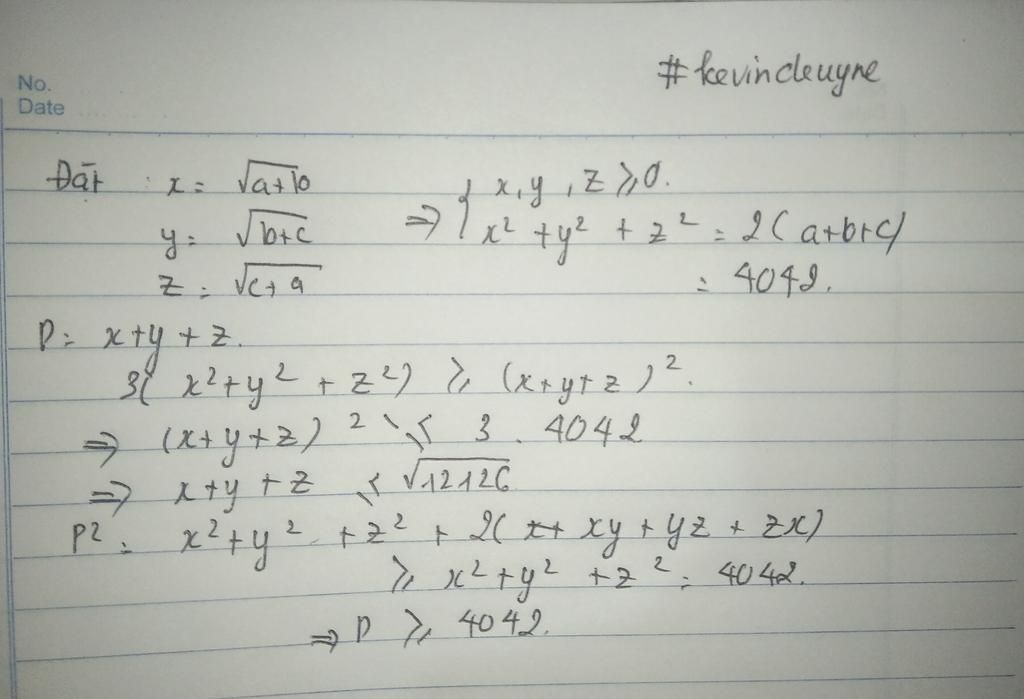 #kevincleuyne
No.
Date
Đặt : x = √a+b
y = √b+c
z = √c+a
⇒ { x, y, z ⩾ 0.
x² + y² + z² = 2(a+b+c)
= 4042.
P = x+y+z.
3( x²+y² + z²) ⩾ (x+y+z)².
⇒ (x+y+z)² ⩽ 3 . 4042
⇒ x+y+z ⩽ √12126
P² = x²+y² + z² + 2( xy + yz + zx)
⩾ x²+y² + z² = 4042.
⇒ P ⩾ 4042.